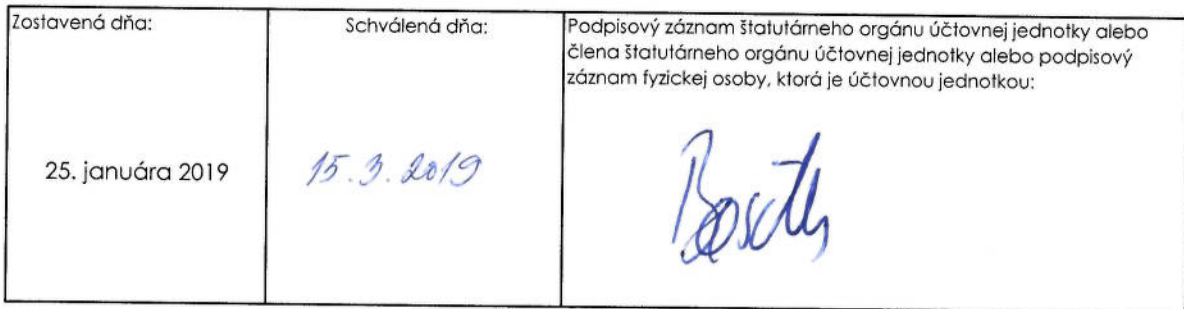 Zostavená dňa:
Schválená dňa:
Podpisový záznam štatutárneho orgánu účtovnej jednotky alebo
člena štatutárneho orgánu účtovnej jednotky alebo podpisový
záznam fyzickej osoby, ktorá je účtovnou jednotkou:
25. januára 2019
15.3.2019